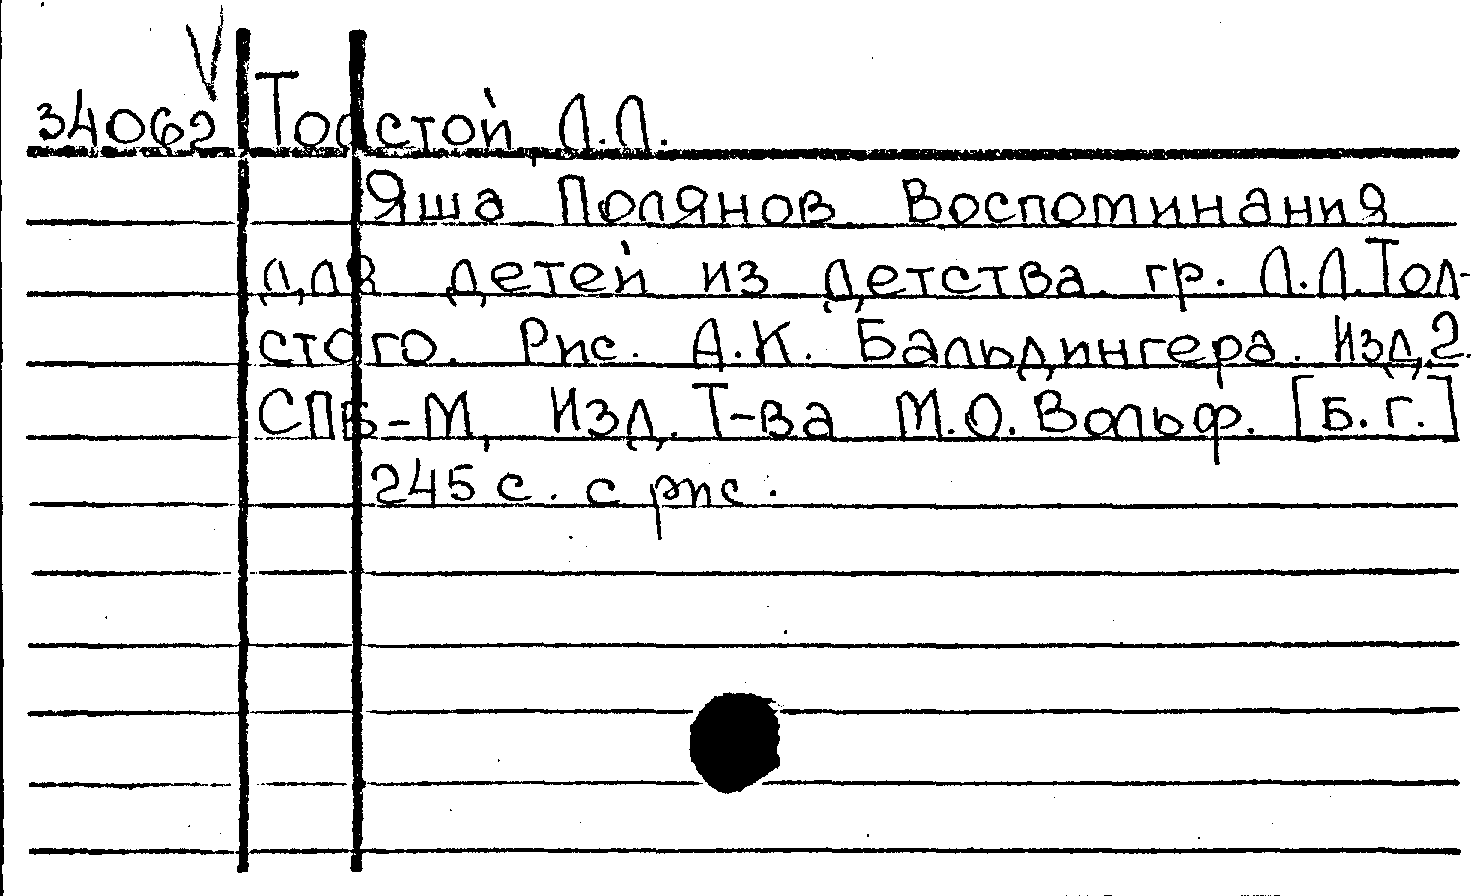 34062 Толстой Л.Л.
Яша Полянов Воспоминания
для детей из детства гр. Л.Л.Тол-
стого. Рис. А.К. Бальдингера. Изд.2.
СПБ-М, Изд. Т-ва М.О.Вольф. [Б.г.]
245 с. с рис.